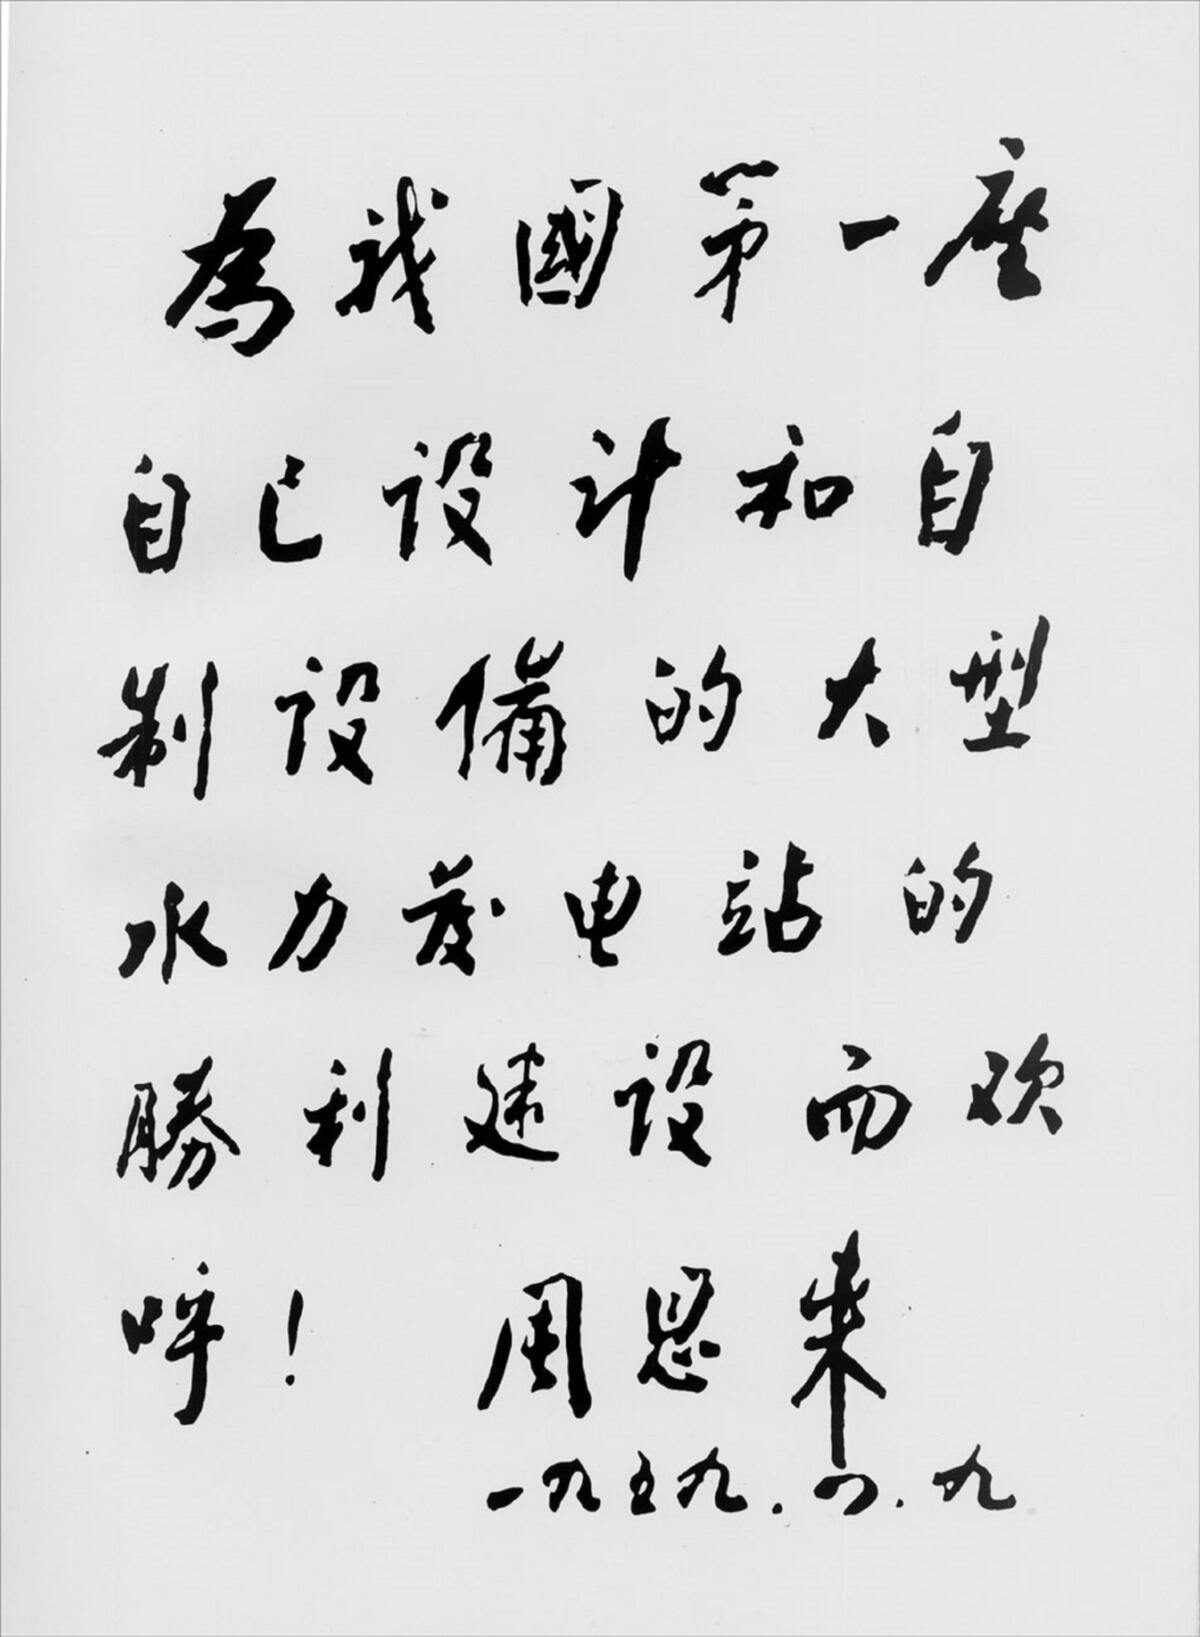 為我國第一座
自己设计和自
制设備的大型
水力发电站的
勝利建设而欢
呼！ 周恩来
一九五九.四.九